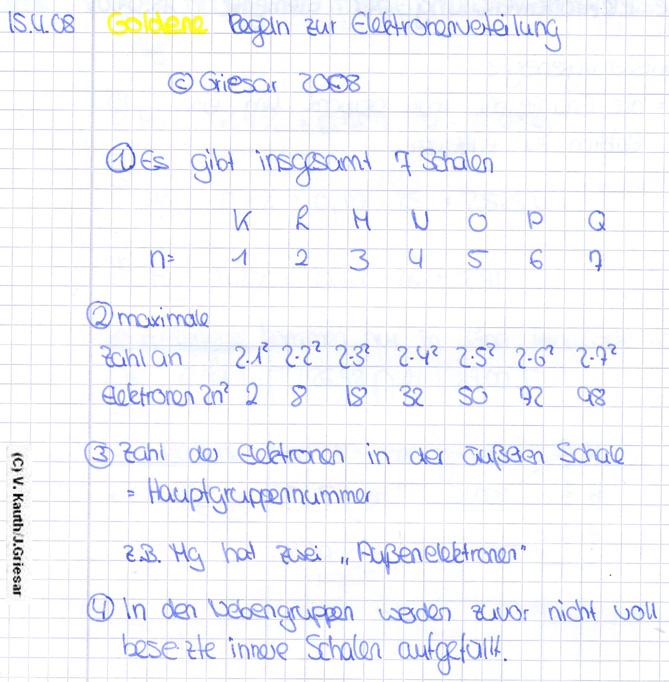 15.4.08 Goldene Regeln zur Elektronenverteilung
© Griesar 2008
① Es gibt insgesamt 7 Schalen
K L M N O P Q
n= 1 2 3 4 5 6 7
② maximale
Zahl an 2·1² 2·2² 2·3² 2·4² 2·5² 2·6² 2·7²
Elektronen 2n² 2 8 18 32 50 72 98
③ Zahl der Elektronen in der äußeren Schale
= Hauptgruppennummer
z.B. Mg hat zwei „Außenelektronen"
④ In den Nebengruppen werden zuvor nicht voll
besetzte innere Schalen aufgefüllt.
(C) V. Kauth/J.Griesar